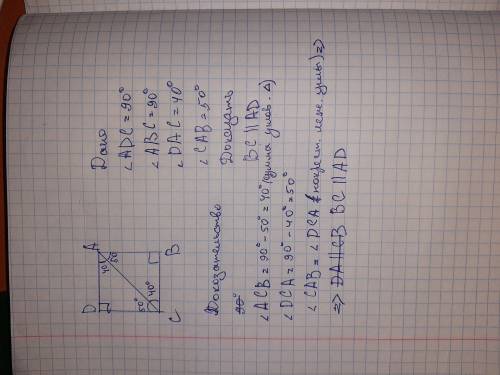 Дано
∠ADC = 90°
∠ABC = 90°
∠DAC = 40°
∠CAB = 50°
Доказать
BC || AD
D A
40° 50°
50° 40°
C B
Доказательство
∠ACB = 90° - 50° = 40° (сумма углов. Δ)
∠DCA = 90° - 40° = 50°
∠CAB = ∠DCA (накрест. леж. углы) =>
=> DA || CB BC || AD